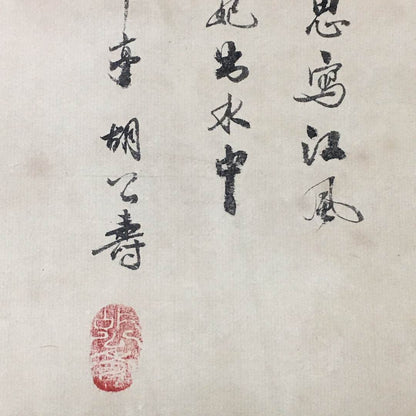 思寫江風
妃出水中
亭 胡公壽